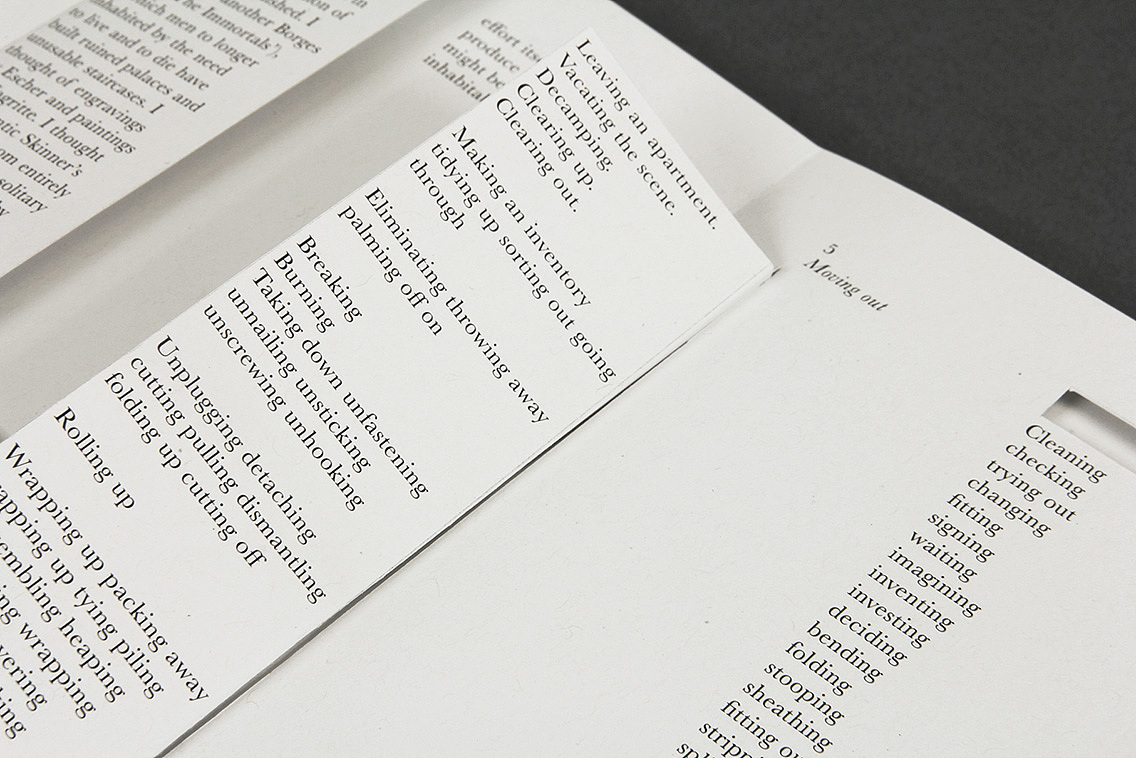 ished. I
another Borges
he Immortals'),
which men to longer
inhabited by the need
to live and to die have
built ruined palaces and
unusable staircases. I
thought of engravings
Escher and paintings
agritte. I thought
ntic Skinner's
om entirely
solitary
by
effort its
produce
might be
inhabita
Leaving an apartment.
Vacating the scene.
Decamping.
Clearing up.
Clearing out.
Making an inventory
tidying up sorting out going
through
Eliminating throwing away
palming off on
Breaking
Burning
Taking down unfastening
unnailing unsticking
unscrewing unhooking
Unplugging detaching
cutting pulling dismantling
folding up cutting off
Rolling up
Wrapping up packing away
rapping up tying piling
embling heaping
ing wrapping
vering
hing
5
Moving out
Cleaning
checking
trying out
changing
fitting
signing
waiting
imagining
inventing
investing
deciding
bending
folding
stooping
sheathing
fitting ou
stripp
spli